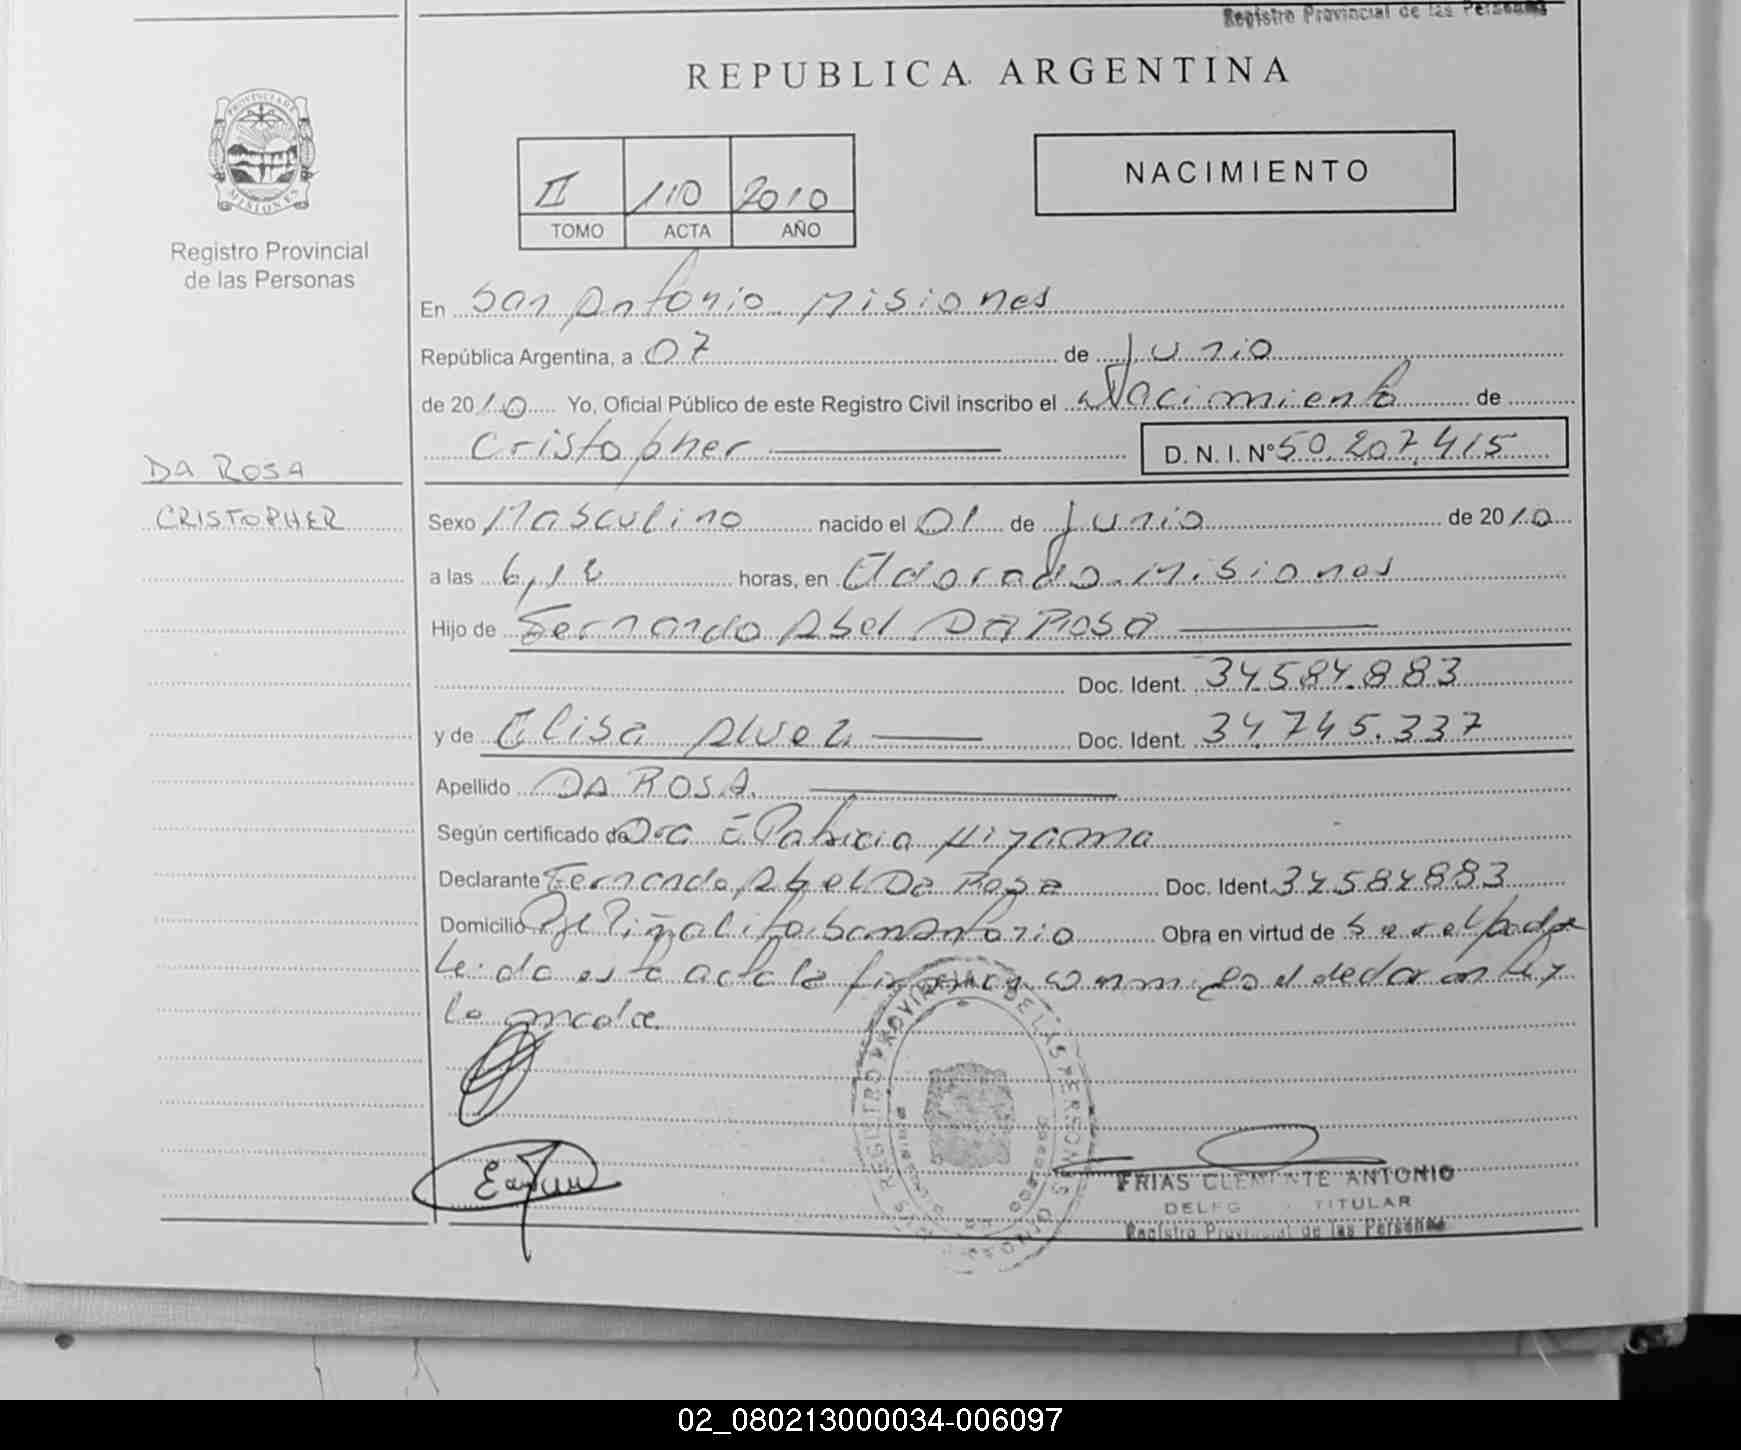 Registro Provincial de las Personas
REPUBLICA ARGENTINA
PROVINCIA DE
MISIONES
Registro Provincial
de las Personas
II 110 2010
TOMO ACTA AÑO
NACIMIENTO
En San Antonio Misiones
República Argentina, a 07 de Junio
de 2010 Yo, Oficial Público de este Registro Civil inscribo el Nacimiento de
Cristopher D. N. I. Nº 50.207.415
DA ROSA
CRISTOPHER
Sexo Masculino nacido el 01 de Junio de 2010
a las horas, en Eldorado Misiones
Hijo de Fernando Abel DA ROSA
Doc. Ident. 34.584.883
y de Elisa Alvez Doc. Ident. 34.745.337
Apellido DA ROSA
Según certificado de Dra Patricia
Declarante Fernando Abel Da Rosa Doc. Ident. 34584883
Domicilio Piñalito San Antonio Obra en virtud de ser el padre
Leida esta acta la firman conmigo el declarante y
la madre
REGISTRO PROVINCIAL DE LAS PERSONAS
FRIAS CLEMENTE ANTONIO
TITULAR
Registro Provincial de las Personas
02_080213000034-006097